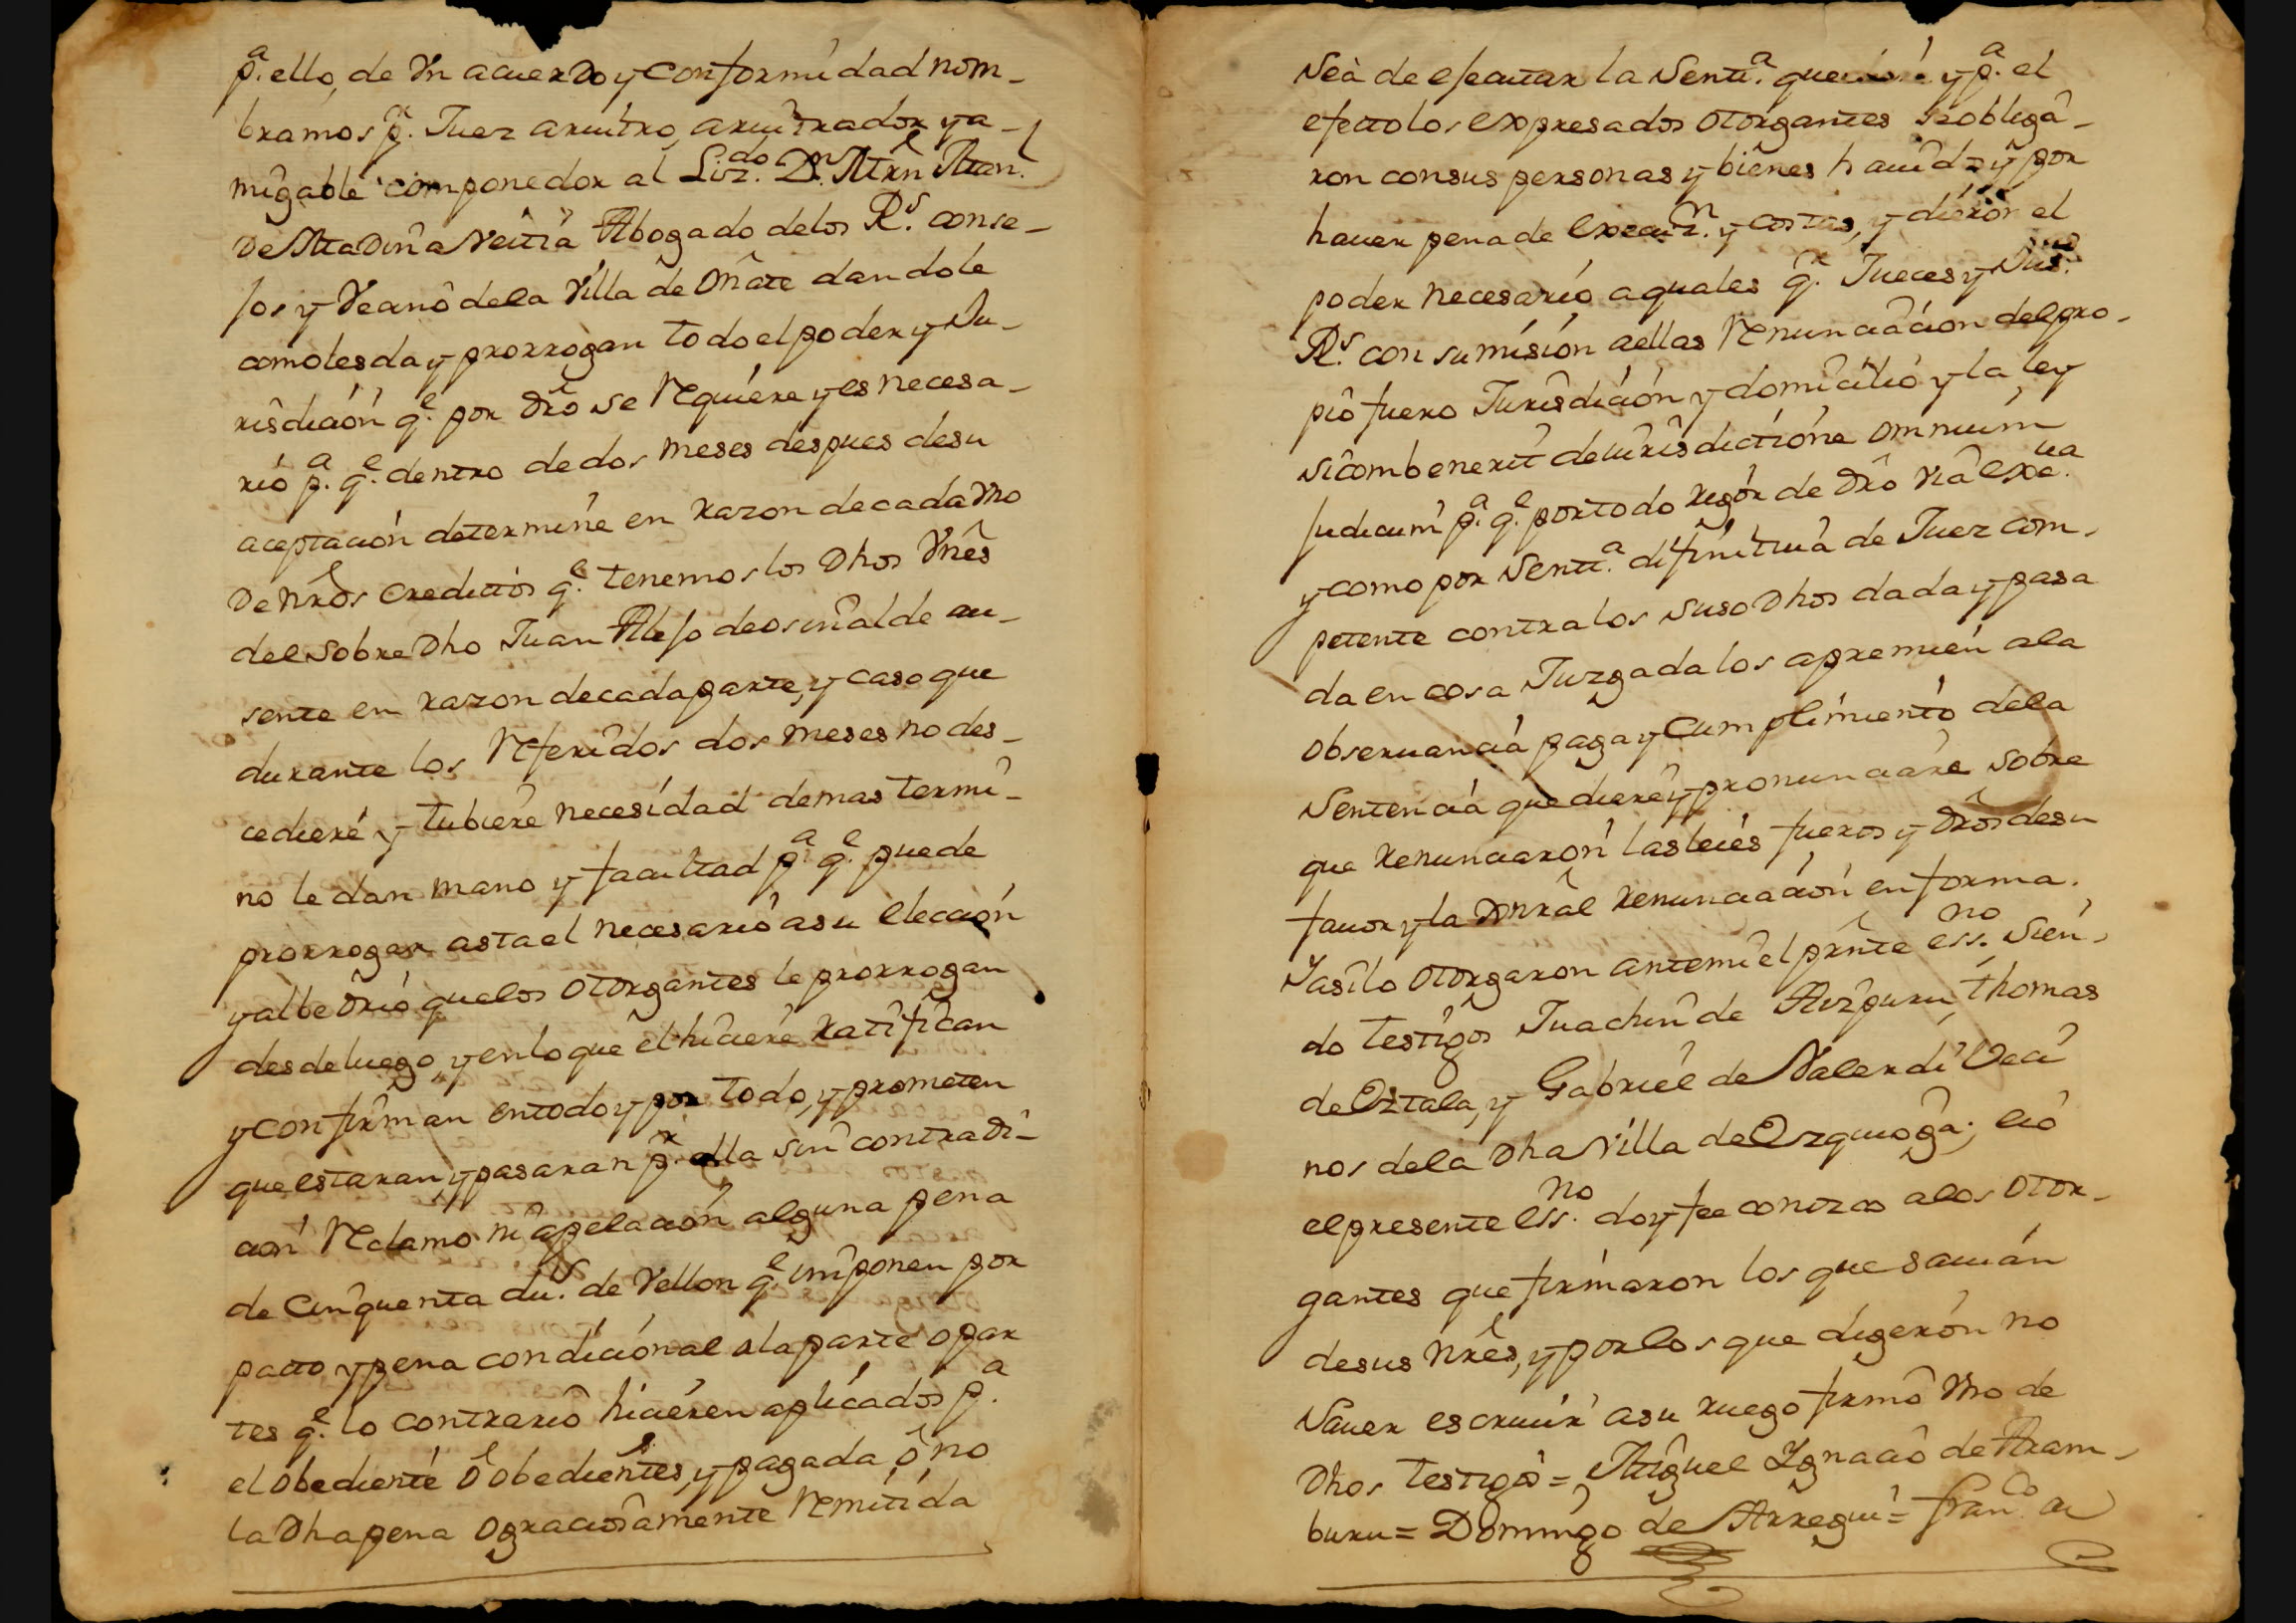 pª. ello, de Vn acuerdo y conformidad nom-
bramos pʳ. Juez aruitro, aruitrador y a-
migable componedor al Lizᵈᵒ. Dⁿ. Mrn̄ Manˡ.
de Madinaveitia Abogado delos Rˢ. conse-
jos y Vecino dela Villa de Oñate dandole
comolesda y prorrogan todo el poder y Ju-
risdicion qᵉ. por dr̄o se Requiere y es necesa-
rio pª. qᵉ. dentro de dos meses despues desu
aceptacion determine en razon de cada Vno
de nr̄os creditos qᵉ. tenemos los dhos Vnes
del sobre dho Juan Alejo de osinalde au-
sente en razon decada parte, y caso que
durante los Referidos dos meses no des-
cediere y tubiere necesidad demas termi-
no le dan mano y facultad pª. qᵉ. puede
prorrogar asta el necesario asu eleccion
y albedrio que los otorgantes le prorrogan
desde luego, y enlo que el hiciere ratifican
y confirman entodo y por todo, y prometen
que estaran, y pasaran pʳ. ella sin contradi-
cion Reclamo ni apelacion alguna pena
de cinquenta duˢ. de Vellon qᵉ. imponen por
pacto y pena condicional ala parte o par
tes qᵉ. lo contrario hicieren aplicados pª.
el obediente ó obedientes, y pagada ó no
la dha pena o graciosamente Remitida
sea de ejecutar la Sentª. que y pª. el
efecto los expresados otorgantes se obliga-
ron consus personas y bienes hauidos y por
hauer pena de execuzⁿ. y costas, y dieron el
poder necesario aquales qʳ. Jueces y Jusᵃˢ.
Rˢ. con sumision aellas Renunciacion delpro-
pio fuero Jurisdicion y domicilio y la ley
sicombenerit deiurisdictione omnium
judicum pª. qᵉ. portodo rigor de dr̄o via exeᵘᵃ.
y como por Sentª. difinitiua de Juez com-
petente contra los suso dhos dada y pasa
da en cosa Juzgada los apremien ala
obseruancia paga y Cumplimiento dela
Sentencia que diere y pronunciare sobre
que renunciaron las leies fueros y dr̄os desu
fauor y la Gnral renunciacion en forma.
Y asilo otorgaron antemi el pr̄nte essⁿᵒ. sien-
do testigos Juachin de Aizpuru, thomas
de Oztala, y Gabriel de Valerdi Veci
nos dela dha Villa de Ozquioga; e io
el presente essⁿᵒ. doy fee conozco alos otor-
gantes que firmaron los que sauian
desus nr̄es, y por los que digeron no
sauer escriuir asu ruego firmó Vno de
dhos testigos = Miguel Ygnacio de Aram-
buru = Domingo de Arregui = franᶜᵒ. de